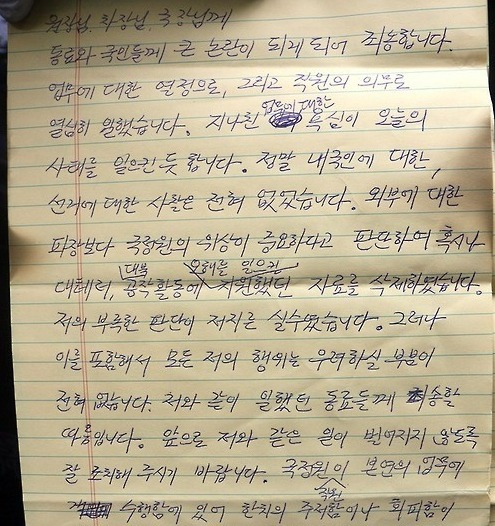 원장님, 차장님, 국장님께
동료와 국민들께 큰 논란이 되게 되어 죄송합니다.
업무에 대한 열정으로, 그리고 직원의 의무로
열심히 일했습니다. 지나친 업무에 대한 욕심이 오늘의
사태를 일으킨 듯 합니다. 정말 내국인에 대한,
선거에 대한 사찰은 전혀 없었습니다. 외부에 대한
파장보다 국정원의 위상이 중요하다고 판단하여 혹시나
대테러, 대북 공작활동에 오해를 일으킨 지원했던 자료를 삭제하였습니다.
저의 부족한 판단이 저지른 실수였습니다. 그러나
이를 포함해서 모든 저의 행위는 우려하실 부분이
전혀 없습니다. 저와 같이 일했던 동료들께 죄송할
따름입니다. 앞으로 저와 같은 일이 벌어지지 않도록
잘 조치해 주시기 바랍니다. 국정원 직원이 본연의 업무에
수행함에 있어 한치의 주저함이나 회피함이